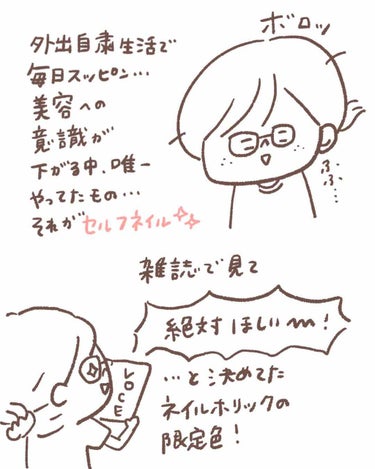 外出自粛生活で
毎日スッピン…
美容への
意識が
下がる中、唯一
やってたもの…
それがセルフネイル
ボロッ
ふふ…
雑誌で見て
絶対ほしい〜〜!
LOCE
…と決めてた
ネイルホリックの
限定色!